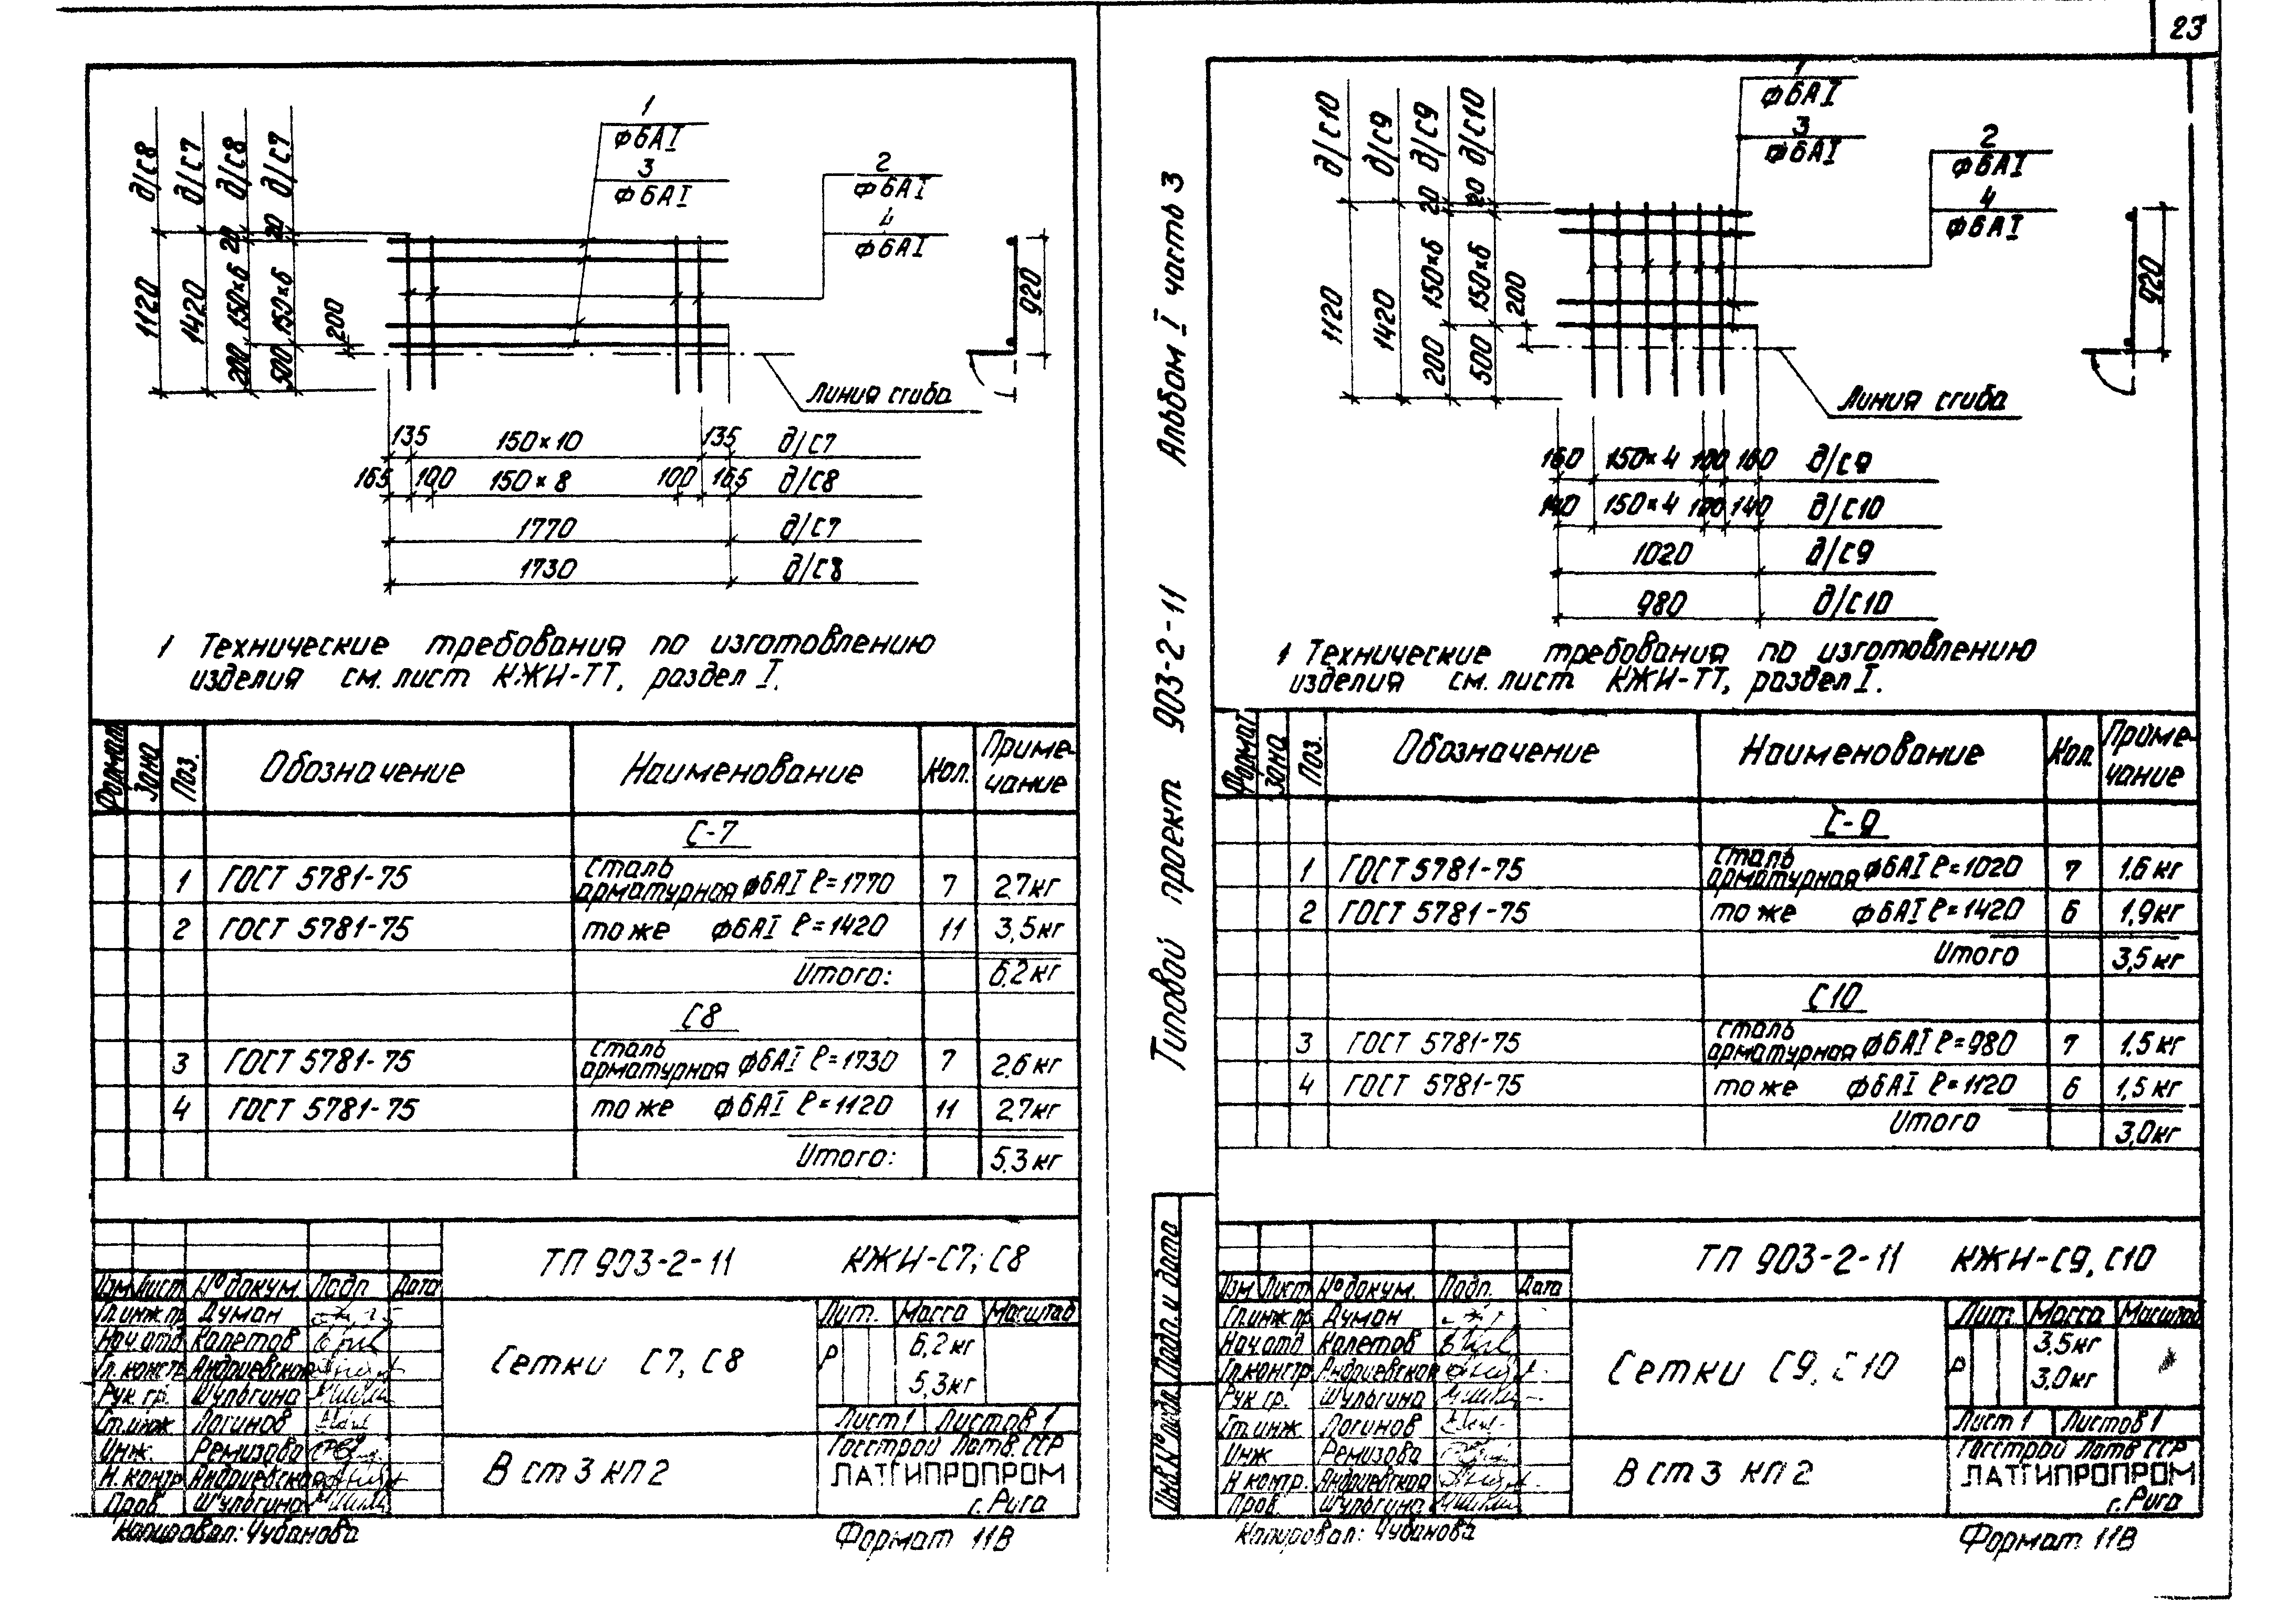 23
д/С8
д/С7
д/С8
д/С7
1120
1420
20
150×6
200
20
150×6
500
200
1
ф6АI
3
ф6АI
2
ф6АI
4
ф6АI
920
Линия сгиба
135 150×10 135 д/С7
165 100 150×8 100 165 д/С8
1770 д/С7
1730 д/С8
1 Технические требования по изготовлению
изделия см. лист КЖИ-ТТ, раздел I.
Формат Зона Поз. Обозначение Наименование Кол. Приме-
чание
С-7
1 ГОСТ 5781-75 сталь арматурная ф6АI ℓ=1770 7 2,7кг
2 ГОСТ 5781-75 то же ф6АI ℓ=1420 11 3,5кг
Итого: 6,2кг
С8
3 ГОСТ 5781-75 сталь арматурная ф6АI ℓ=1730 7 2,6кг
4 ГОСТ 5781-75 то же ф6АI ℓ=1120 11 2,7кг
Итого: 5,3кг
ТП 903-2-11 КЖИ-С7; С8
Изм Лист № докум. Подп Дата
Гл.инж.пр. Думан
Нач.отд Калетов
Гл. констр Андриевская
Рук. гр. Шульгина
Ст.инж Логинов
Инж. Ремизова
Н. контр Андриевская
Пров Шульгина
Сетки С7, С8
Лит. Масса Масштаб
Р 6,2кг
5,3кг
Лист 1 Листов 1
В ст 3 кп 2
Госстрой Латв. ССР
ЛАТГИПРОПРОМ
г. Рига
Копировал: Чубанова
Формат 11В
Типовой проект 903-2-11 Альбом I часть 3
Подп. и дата
Инв.№ подл.
д/С10
д/С9
д/С9
д/С10
1120
1420
20
150×6
200
20
150×6
500
200
1
ф6АI
3
ф6АI
2
ф6АI
4
ф6АI
920
Линия сгиба
160 150×4 100 160 д/С9
140 150×4 100 140 д/С10
1020 д/С9
980 д/С10
1 Технические требования по изготовлению
изделия см. лист КЖИ-ТТ, раздел I.
Формат Зона Поз. Обозначение Наименование Кол. Приме-
чание
С-9
1 ГОСТ 5781-75 сталь арматурная ф6АI ℓ=1020 7 1,6 кг
2 ГОСТ 5781-75 то же ф6АI ℓ=1420 6 1,9кг
Итого 3,5кг
С10
3 ГОСТ 5781-75 сталь арматурная ф6АI ℓ=980 7 1,5кг
4 ГОСТ 5781-75 то же ф6АI ℓ=1120 6 1,5кг
Итого 3,0кг
ТП 903-2-11 КЖИ-С9, С10
Изм Лист № докум. Подп. Дата
Гл.инж.пр Думан
Нач.отд Калетов
Гл.констр. Андриевская
Рук гр. Шульгина
Ст.инж Логинов
Инж Ремизова
Н. контр. Андриевская
Пров. Шульгина
Сетки С9, С10
Лит. Масса Масштаб
Р 3,5кг
3,0кг
Лист 1 Листов 1
В ст 3 кп 2
Госстрой Латв ССР
ЛАТГИПРОПРОМ
г. Рига
Копировал: Чубанова
Формат 11В